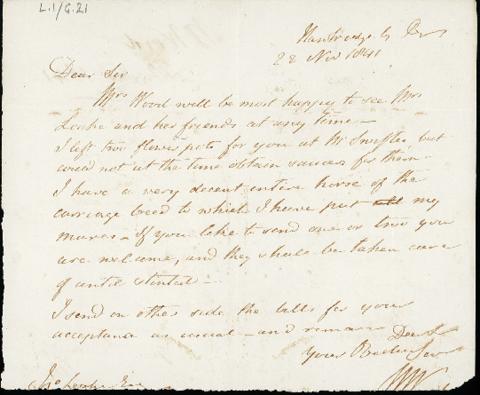 L.1/G.21
22 Nov 1841
Dear Sir
Mrs Wood will be most happy to see Mrs
Leake and her friends at any time –
I left two flower pots for you at Mr Swifts, but
could not at the time obtain saucers for them –
I have a very decent entire horse of the
carriage breed to which I have put my
mares – If you like to send one or two you
are welcome, and they shall be taken care
of until stinted –
I send on other side the bills for your
acceptance as usual – and remain
Dear Sir
Yours
Leake Esq